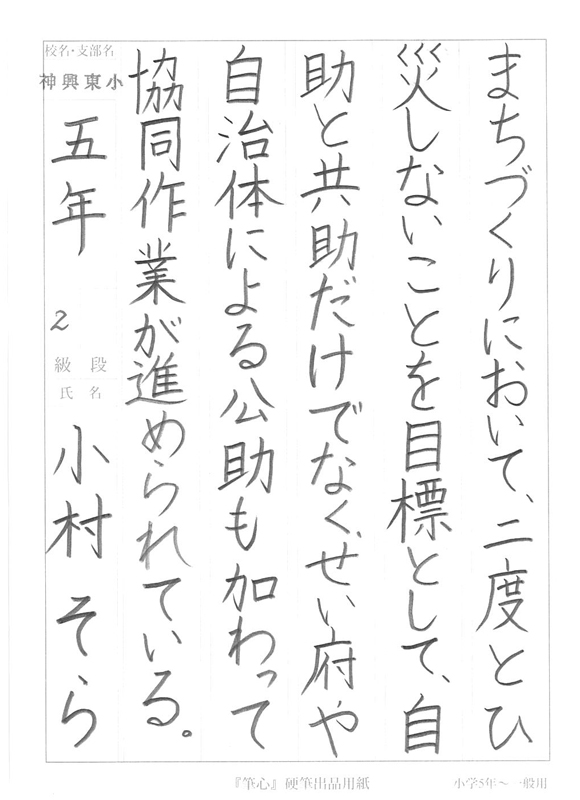 まちづくりにおいて、二度とひ
災しないことを目標として、自
助と共助だけでなく、せい府や
自治体による公助も加わって
協同作業が進められている。
校名・支部名
神興東小
五年
2
級 段
氏 名
小村そら
『筆心』硬筆出品用紙
小学5年～一般用